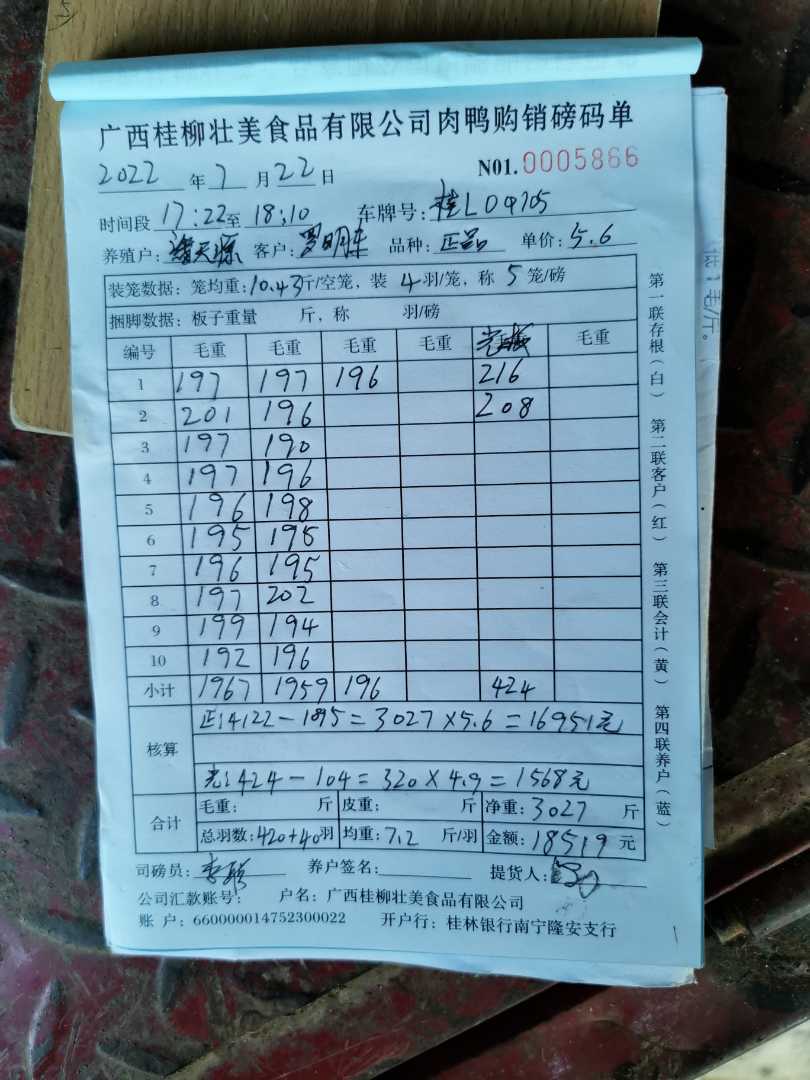 广西桂柳壮美食品有限公司肉鸭购销磅码单
2022 年 7 月 22 日 N01. 0005866
时间段 17:22 至 18:10 车牌号: 桂L09705
养殖户: 客户: 罗明东 品种: 正品 单价: 5.6
装笼数据: 笼均重: 10.43 斤/空笼, 装 4 羽/笼, 称 5 笼/磅
捆脚数据: 板子重量 斤, 称 羽/磅
编号 毛重 毛重 毛重 毛重 毛重
1 197 197 196 216
2 201 196 208
3 197 190
4 197 196
5 196 198
6 195 195
7 196 195
8 197 202
9 199 194
10 192 196
小计 1967 1959 196 424
核算
正: 4122-1095=3027×5.6=16951元
424-104=320×4.9=1568元
合计
毛重: 斤 皮重: 斤 净重: 3027 斤
总羽数: 420+40 羽 均重: 7.2 斤/羽 金额: 18519 元
司磅员: 养户签名: 提货人:
公司汇款账号: 户名: 广西桂柳壮美食品有限公司
账 户: 660000014752300022 开户行: 桂林银行南宁隆安支行
第一联存根(白) 第二联客户(红) 第三联会计(黄) 第四联养户(蓝)
毛/斤。